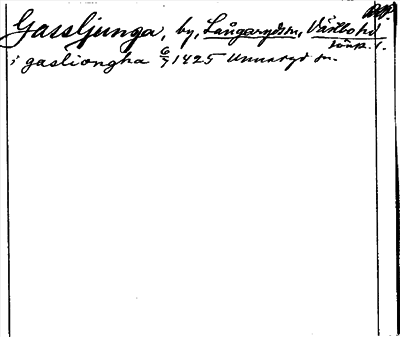 Gassljunga, by, Långaryds sn, Västbo hd
Jönk. l.
i gasliongha 6/7 1425 Unnaryd sn.